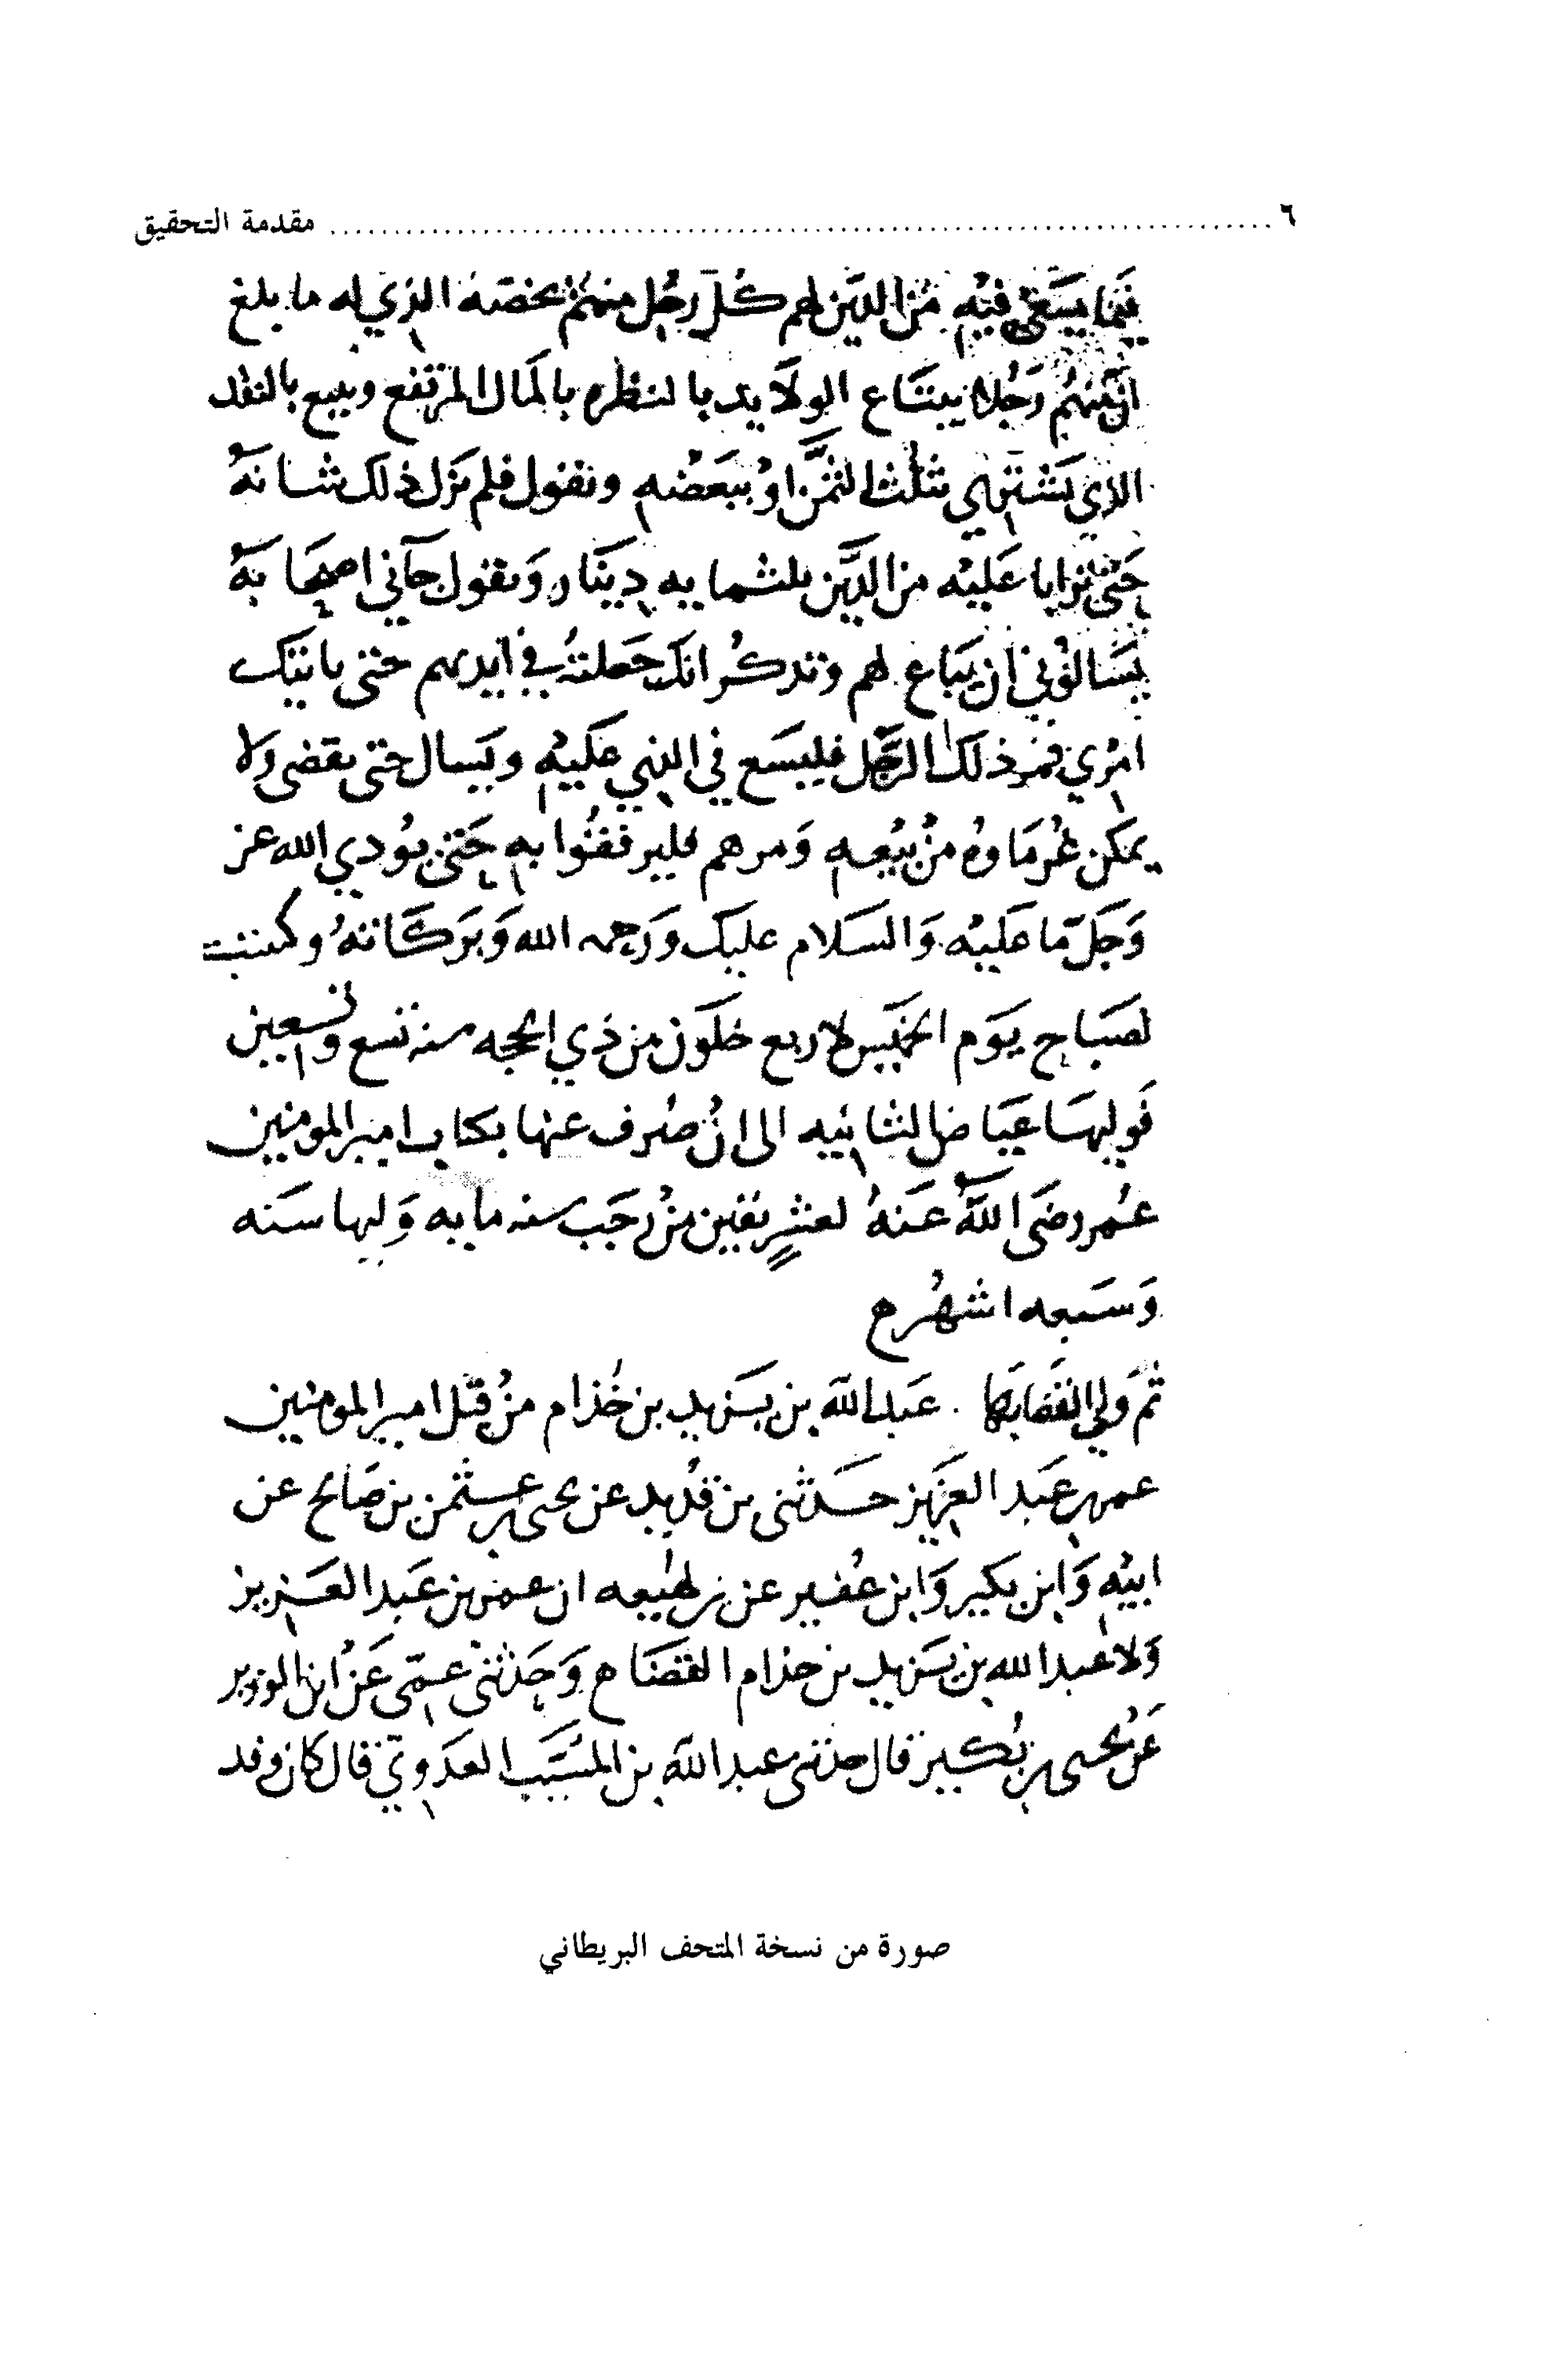 ٦ ........ مقدمة التحقيق
فيما يسعى فيه من الدين لهم كل رجل منهم بحصته الذي له ما بلغ
رجلا يبتاع الولايد بالنظره بالمال المرتفع ويبيع بالنقد
الذي يشتري بثلث الثمن او ببعضه وتقول فلم يزل ذلك شانه
حتى عليه من الدين ثلثمايه دينار وتقول جآني اصحابه
يسالوني ان يباع لهم وتذكر انك جعلته في ايديهم حتى ياتيك
امري فمر ذلك الرجل فليسع في الذي عليه ويسال حتى يقضى ولا
يمكن غرماوه من بيعه ومرهم فليرفقوا به حتى يودي الله عز
وجل ما عليه والسلام عليك ورحمه الله وبركاته وكتبت
لصباح يوم الخميس لاربع خلون من ذي الحجه سنه تسع وتسعين
فوليها عياض الثانيه الى ان صرف عنها بكتاب امير المومنين
عمر رضى الله عنه لعشر بقين من رجب سنه مايه وليها سنه
وسبعه اشهر ح
ثم ولي القضا بها عبد الله بن يزيد بن خذام من قبل امير المومنين
عمر بن عبد العزيز حدثنى بن قديد عن يحيى بن عثمن بن صالح عن
ابيه وابن بكير وابن عفير عن بن لهيعه ان عمر بن عبد العزيز
ولا عبد الله بن يزيد بن خذام القضا ح وحدثنى عمى عن ابن الوزير
عن يحيى بن بكير قال حدثنى عبد الله بن المسيب العدوي قال كان وفد
صورة من نسخة المتحف البريطاني